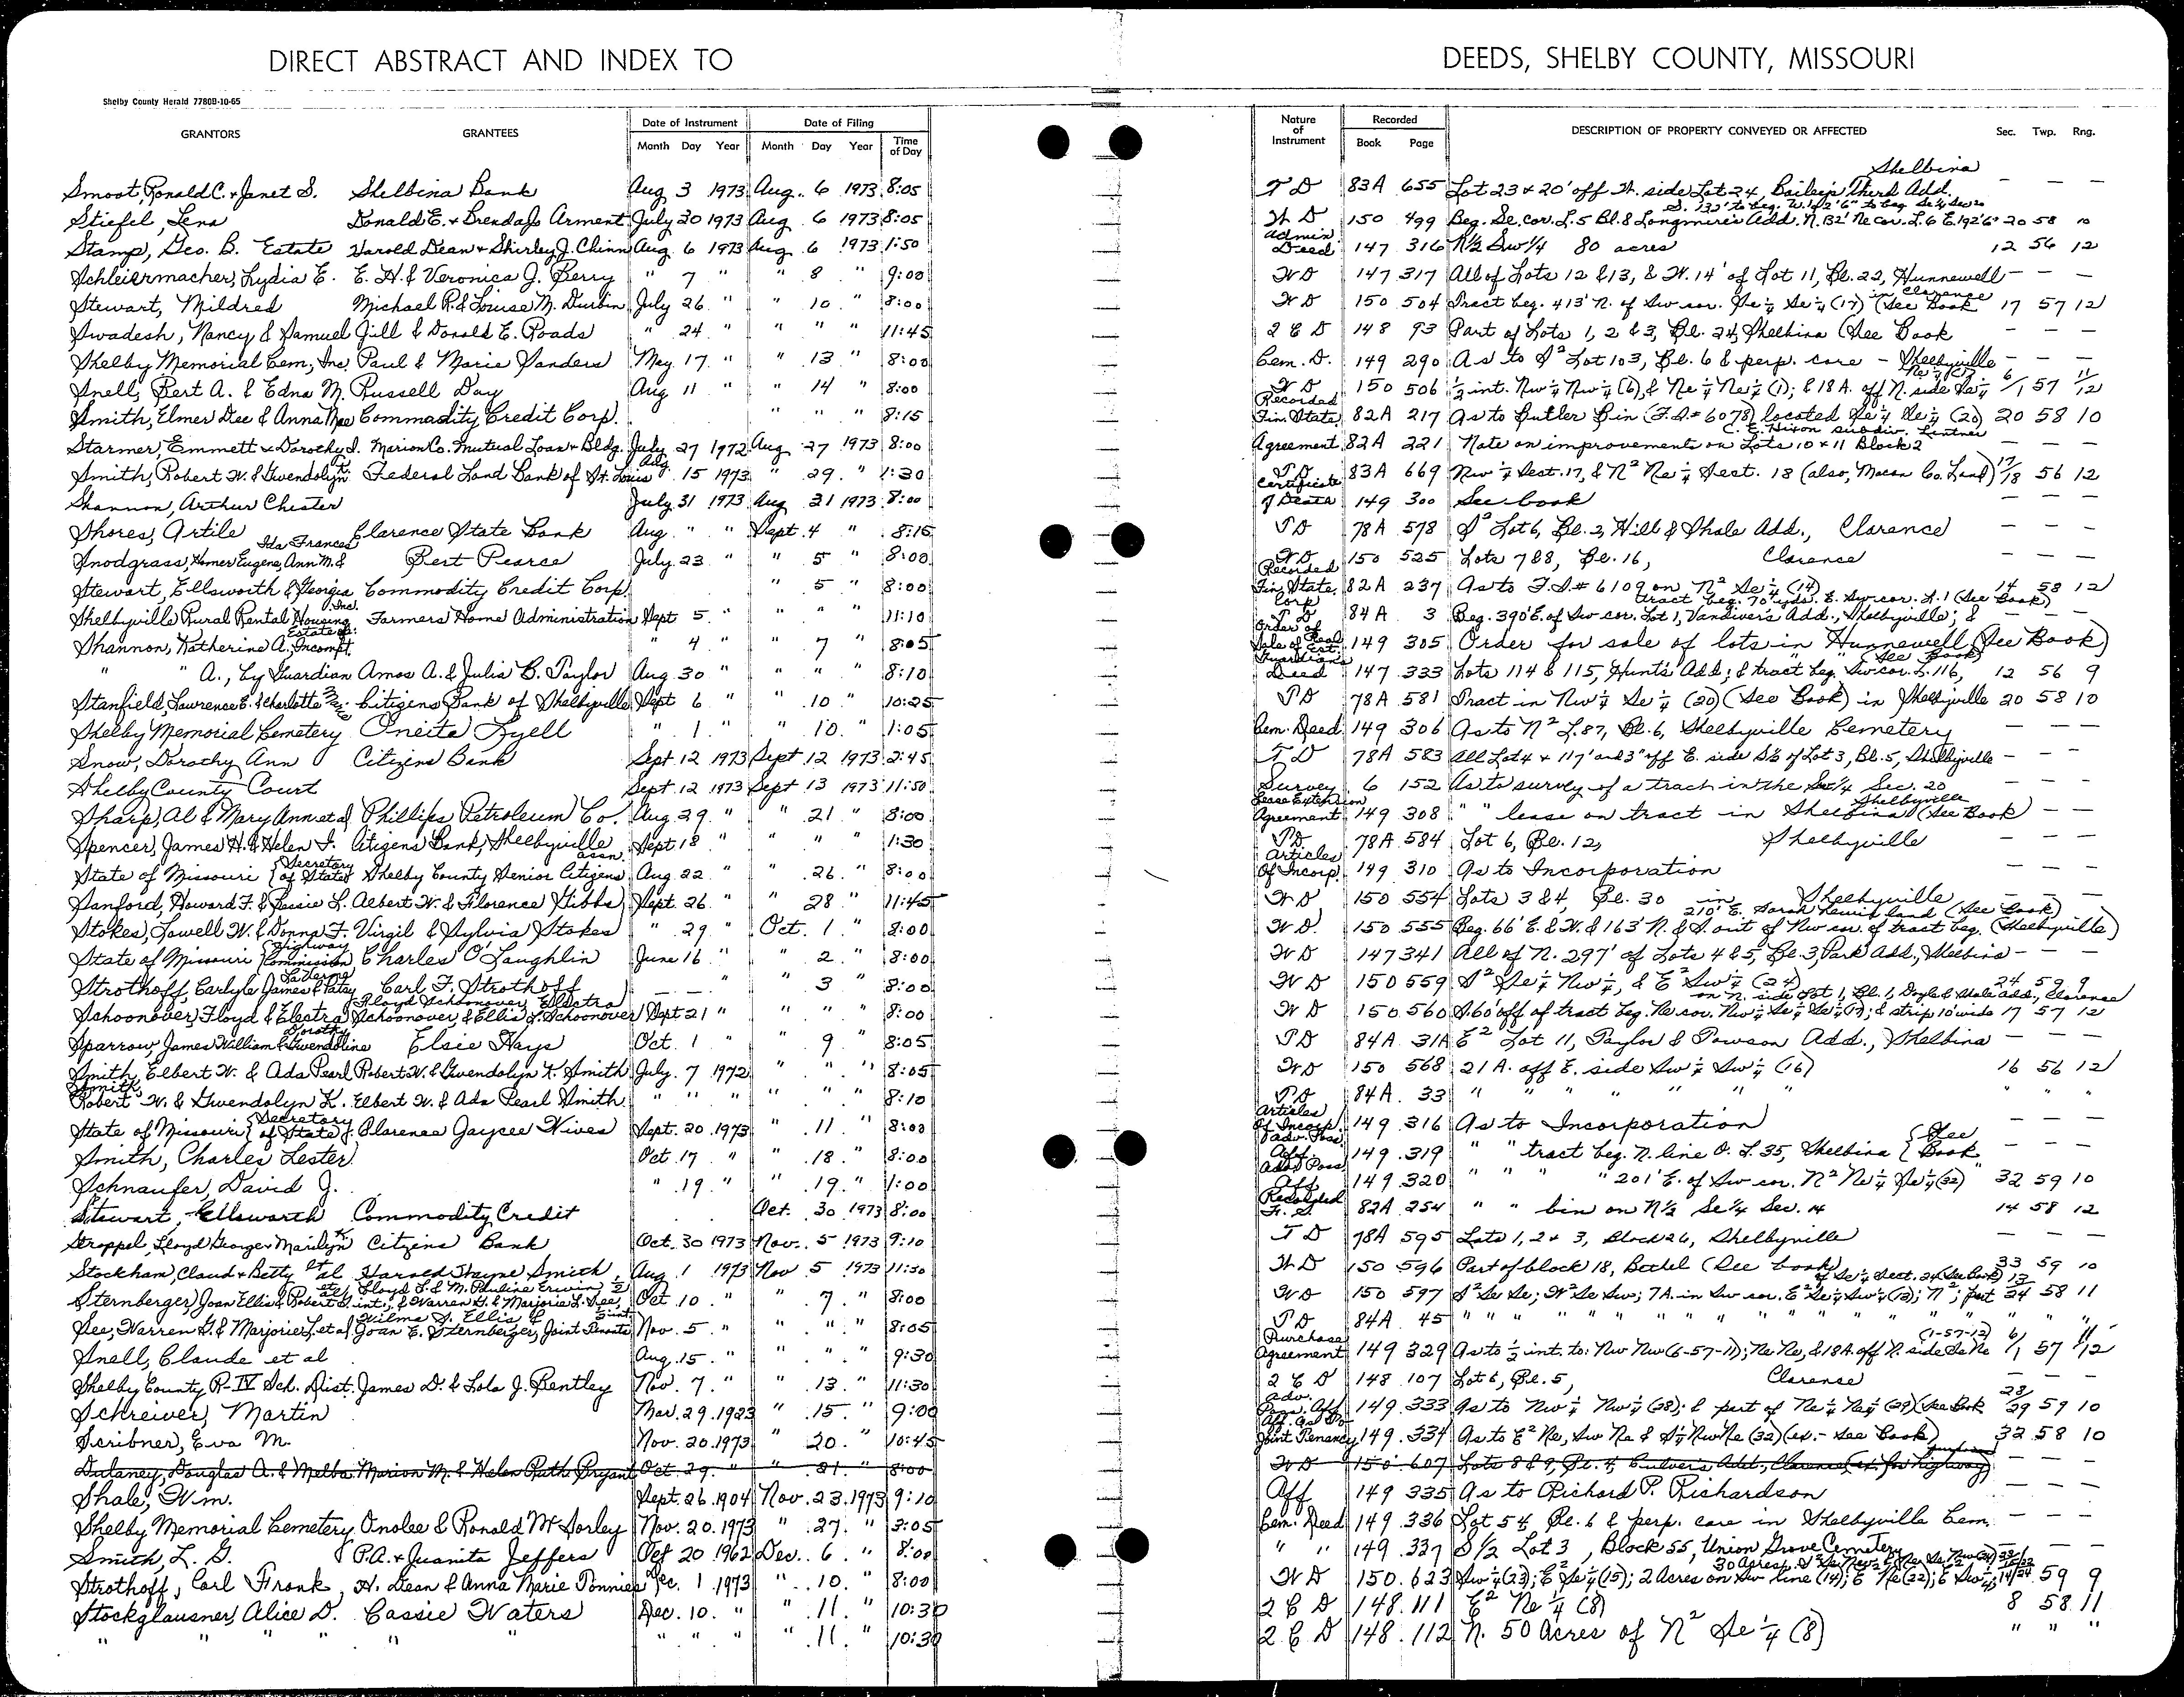 DIRECT ABSTRACT AND INDEX TO DEEDS, SHELBY COUNTY, MISSOURI
Shelby County Herald 7780B-10-65
GRANTORS GRANTEES Date of Instrument Month Day Year Date of Filing Month Day Year Time of Day Nature of Instrument Recorded Book Page DESCRIPTION OF PROPERTY CONVEYED OR AFFECTED Sec. Twp. Rng.
Smoot, Ronald C. & Janet S. Shelbina Bank Aug 3 1973 Aug. 6 1973 8:05 T D 83A 655 Lot 23 & 20' off W. side Lot 24, Baileys Third Add. Shelbina — — —
Stiefel, Lena Donald E. & Brenda Jo Arment July 30 1973 Aug 6 1973 8:05 W D 150 499 Beg. Se. cor. L.5 Bl.8 Longmire's Add. N. 132' Ne cor. L.6 E. 192'6" S. 132' to beg. W. 192'6" to beg Se¼ Sec 20 20 58 10
Stamp, Geo. B. Estate Harold Dean & Shirley J. Chinn Aug 6 1973 Aug 6 1973 1:50 Admin Deed 147 316 N½ Sw¼ 80 acres 12 56 12
Schleiermacher, Lydia E. E. H. & Veronica J. Berry " 7 " " 8 " 9:00 W D 147 317 All of Lots 12 & 13, & W. 14' of Lot 11, Bl. 22, Hunnewell — — —
Stewart, Mildred Michael R. & Louise M. Durbin July 26 " " 10 " 8:00 W D 150 504 Tract beg. 413' N. of Sw cor. Se¼ Se¼ (17) in Clarence (See Book 17 57 12
Swadesh, Nancy & Samuel Jill & Donald E. Roads " 24 " " " " 11:45 2 C D 148 93 Part of Lots 1, 2 & 3, Bl. 24, Shelbina (See Book — — —
Shelby Memorial Cem, Inc. Paul & Marie Sanders May 17 " " 13 " 8:00 Cem. D. 149 290 As to S² Lot 103, Bl. 6 & perp. care — Shelbyville — —
Snell, Bert A. & Edna M. Russell Day Aug 11 " " 14 " 8:00 W D 150 506 ½ int. Nw¼ Nw¼ (6), & Ne¼ Ne¼ (1); & 18 A. off N. side Se¼ Ne¼ (1) 6/1 57 11/12
Smith, Elmer Dee & Anna Mae Commodity Credit Corp. " " " 8:15 Recorded Fin. State. 82A 217 As to Butler Bin (F.S.# 6078) located Se¼ Se¼ (20) 20 58 10
Starmer, Emmett & Dorothy I. Marion Co. Mutual Loan & Bldg. July 27 1972 Aug 27 1973 8:00 Agreement 82A 221 Note on improvements on Lots 10 & 11 Block 2 C. E. Hixon subdiv. Lentner — — —
Smith, Robert W. & Gwendolyn K. Federal Land Bank of St. Louis Aug 15 1973 " 29 " 1:30 T D 83A 669 Nw¼ Sect. 17, & N² Ne¼ Sect. 18 (also, Macon Co. Land) 17/18 56 12
Shannon, Arthur Chester July 31 1973 Aug 31 1973 8:00 Certificate of Death 149 300 See book — — —
Shores, Artile Clarence State Bank Aug. " " Sept. 4 " 8:15 T D 78A 578 S² Lot 6, Bl. 2, Hill & Shale Add., Clarence — — —
Snodgrass, Homer Eugene, Ann M. & Ida Frances Bert Pearce July 23 " " 5 " 8:00 W D 150 525 Lots 7 & 8, Bl. 16, Clarence — — —
Stewart, Ellsworth & Georgia Commodity Credit Corp. " 5 " 8:00 Recorded Fin. State. 82A 237 As to F.S.# 6109 on N² Se¼ (14) 14 58 12
Shelbyville Rural Rental Housing Inc. Farmers Home Administration Sept 5 " " " " 11:10 Corp T D 84A 3 Beg. 390' E. of Sw cor. Lot 1, Vandiver's Add., Shelbyville; & tract beg. 70 yds. E. Sw cor. L.1 (See Book) — —
Shannon, Katherine A., Incompt. Estate of: " 4 " " 7 " 8:05 Order of Sale of Real Est. 149 305 Order for sale of lots in Hunnewell (See Book)
" A., by Guardian Amos A. & Julia B. Taylor Aug. 30 " " " " 8:10 Guardians Deed 147 333 Lots 114 & 115, Hunt's Add; & tract beg. Sw cor. L. 116, (See Book) 12 56 9
Stanfield, Lawrence E. & Charlotte Citizens Bank of Shelbyville Sept 6 " " 10 " 10:25 T D 78A 581 Tract in Nw¼ Se¼ (20) (See Book) in Shelbyville 20 58 10
Shelby Memorial Cemetery Oneita Lyell " 1 " " 10. " 1:05 Cem. Deed 149 306 As to N² L. 87, Bl. 6, Shelbyville Cemetery — — —
Snow, Dorothy Ann Citizens Bank Sept 12 1973 Sept 12 1973 2:45 T D 78A 583 All Lot 4 & 117' and 3" off E. side S½ of Lot 3, Bl. 5, Shelbyville — — —
Shelby County Court Sept. 12 1973 Sept 13 1973 11:50 Survey 6 152 As to survey of a tract in the Se¼ Sec. 20 — — —
Sharp, Al & Mary Ann et al Phillips Petroleum Co. Aug 29 " " 21 " 8:00 Lease Extension Agreement 149 308 " " lease on tract in Shelbina Shelbyville (See Book) — —
Spencer, James H. & Helen F. Citizens Bank, Shelbyville Sept 18 " " " " 1:30 T D 78A 584 Lot 6, Bl. 12, Shelbyville — — —
State of Missouri {Secretary of State} Shelby County Senior Citizens assn. Aug. 22 " " 26 " 8:00 Articles Of Incorp. 149 310 As to Incorporation — — —
Sanford, Howard F. & Bessie L. Albert W. & Florence Stibbs Sept. 26 " " 28 " 11:45 W D 150 554 Lots 3 & 4, Bl. 30 in Shelbyville — — —
Stokes, Lowell W. & Donna F. Virgil & Sylvia Stokes " 29 " Oct. 1 " 8:00 W. D. 150 555 Beg. 66' E. & W. & 163' N. & S. out of Nw cor. of tract beg. 210' E. Sarah Lewis land (See Book) (Shelbyville)
State of Missouri {Highway Commission Charles O'Laughlin June 16 " " 2 " 8:00 W D 147 341 All of N. 297' of Lots 4 & 5, Bl. 3, Park Add., Shelbina — — —
Strothoff, Carlyle James & Patsy LaVerna Carl F. Strothoff — — " 3 8:00 W D 150 559 S² Se¼ Nw¼, & E² Sw¼ (24) 24 59 9
Schoonover, Floyd & Electra Floyd Schoonover, Electra Schoonover, & Ellis J. Schoonover Sept 21 " " " " 8:00 W D 150 560 S. 60' off of tract beg. Ne cor. Nw¼ Se¼ Se¼ (17); & strip 10' wide on N. side Lot 1, Bl. 1, Doyle & Shale add., Clarence 17 57 12
Sparrow, James William & Dorothy Gwendoline Elsie Hays Oct. 1 " " 9 " 8:05 T D 84A 31A E² Lot 11, Taylor & Towson Add., Shelbina — — —
Smith, Elbert W. & Ada Pearl Robert W. & Gwendolyn K. Smith July. 7 1972 " " " 8:05 W D 150 568 21 A. off E. side Sw¼ Sw¼ (16) 16 56 12
Smith Robert W. & Gwendolyn K. Elbert W. & Ada Pearl Smith " " " " " " 8:10 T D 84A. 33 " " " " " " " "
State of Missouri {Secretary of State}. Clarence Jaycee Wives Sept. 20 1973 " 11 " 8:00 Articles Of Incorp. 149 316 As to Incorporation — — —
Smith, Charles Lester Oct. 17 " " 18 " 8:00 Adv. Poss. Aff. 149 319 " " tract beg. N. line O. L. 35, Shelbina {See Book — — —
Schnaufer, David J. " 19 " " 19. " 1:00 Adv. Poss Aff 149 320 " " " " 201' E. of Sw cor. N² Ne¼ Se¼ (32) 32 59 10
Stewart, Ellsworth Commodity Credit Oct. 30 1973 8:00 Recorded F. S 82A 254 " " bin on N½ Se¼ Sec. 14 14 58 12
Stroppel, Lloyd George & Marilyn K Citizens Bank Oct. 30 1973 Nov. 5 1973 9:10 T D 78A 595 Lots 1, 2 & 3, Block 26, Shelbyville — — —
Stockham, Claud & Betty et al Harold Wayne Smith Aug 1 1973 Nov 5 1973 11:30 W D 150 596 Part of block 18, Bethel (See book) 33 59 10
Sternberger, Joan Ellis & Robert et al Floyd F. & M. Pauline Ervin ½ int; & Warren G. & Marjorie L. See Oct 10 " " 7 " 8:00 W D 150 597 S² Se Se; W² Se Sw; 7 A. in Sw cor. E² Se¼ Sw¼ (13); N²; part of Se¼ Sect. 24 (See Book) 13/24 58 11
See, Warren G. & Marjorie L. et al Wilma J. Ellis & Joan E. Sternberger, Joint Tenants Nov. 5 " " " " 8:05 T D 84A 45 " " " " " " " " " " " "
Snell, Claude et al Aug. 15 " " " " 9:30 Purchase Agreement 149 329 As to ½ int. to: Nw Nw (6-57-11); Ne Ne, & 18 A. off N. side Se Ne (1-57-12) 6/1 57 11/12
Shelby County R-IV Sch. Dist. James D. & Lola J. Bentley Nov. 7. " " 13. " 11:30 2 C D 148 107 Lot 6, Bl. 5, Clarence — — —
Schreiver, Martin Mar. 29. 1923 " 15. " 9:00 Adv. Poss. Aff 149 333 As to Nw¼ Nw¼ (28); & part of Ne¼ Ne¼ (29) (See Book 28/29 59 10
Scribner, Eva M. Nov. 20. 1973 " 20. " 10:45 Aff. as to Joint Tenancy 149 334 As to E² Ne, Sw Ne & S½ Nw Ne (32) (ex. - See Book) 32 58 10
Dulaney, Douglas A. & Melba Marion M. & Helen Ruth Bryant Oct. 29. " " 21. " 8:00 W D 150 607 Lots 8 & 9, Bl. 4, Culver's Add., Clarence, (ex. for highway) — — —
Shale, Wm. Sept. 26. 1904 Nov. 23. 1973 9:10 Aff 149 335 As to Richard P. Richardson — — —
Shelby Memorial Cemetery Onolee & Ronald McSorley Nov. 20. 1973 " 27. " 3:05 Cem. Deed 149 336 Lot 54 Bl. 6 & perp. care in Shelbyville Cem. — — —
Smith, L. G. P.A. & Juanita Jeffers Oct 20 1962 Dec. 6 " 8:00 " " 149 337 S½ Lot 3, Block 55, Union Grove Cemetery
Strothoff, Carl Frank, H. Dean & Anna Marie Tonnies Dec. 1 1973 " 10. " 8:00 W D 150 623 Sw¼ (23); E² Se¼ (15); 2 Acres on Sw line (14); E² Ne (22); 59 9
Stockglausner, Alice D. Cassie Waters Dec. 10. " " 11. " 10:30 2 C D 148 111 E² Ne¼ (8) 8 58 11
" " " " " " " " " " 11. " 10:30 2 C D 148 112 N. 50 Acres of N² Se¼ (8) " " "